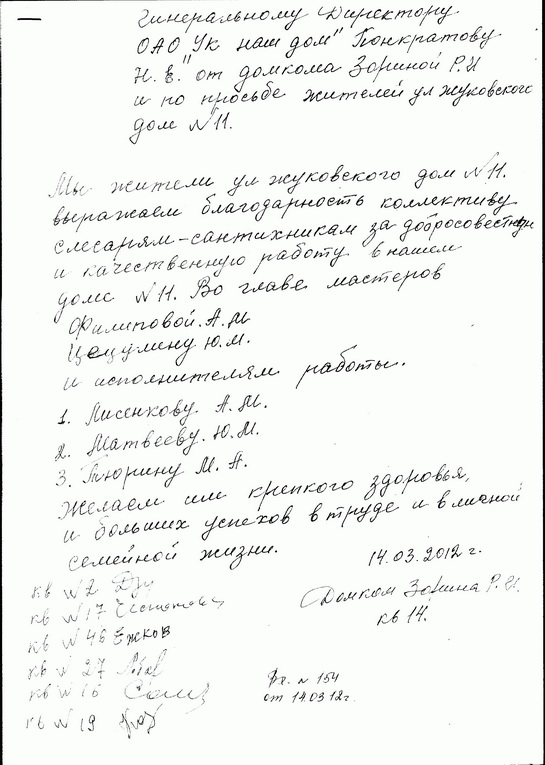 Гинеральному Директору
ОАО "Ук наш дом" Понкратову
Н. Е. от домкома Зориной Р. И
и по просьбе жителей ул жуковского
дом N 11.
Мы жители ул жуковского дом N 11.
выражаем благодарность коллективу
слесарям-сантихникам за добросовестную
и качественную работу в нашем
доме N 11. Во главе мастеров
Филиповой. А. М
Ю. М.
и исполнителям работы.
1. Лисенкову. А. М.
2. Матвееву. Ю. М.
3. Тюрину М. А.
Желаем им крепкого здоровья,
и больших успехов в труде и в личной
семейной жизни.
14.03.2012 г.
Домком Зорина Р. И.
кв 14.
кв N 2
кв N 17
кв N 46 Ежков
кв N 27
кв N 16
кв N 19
Вх. N 154
от 14.03 12г.